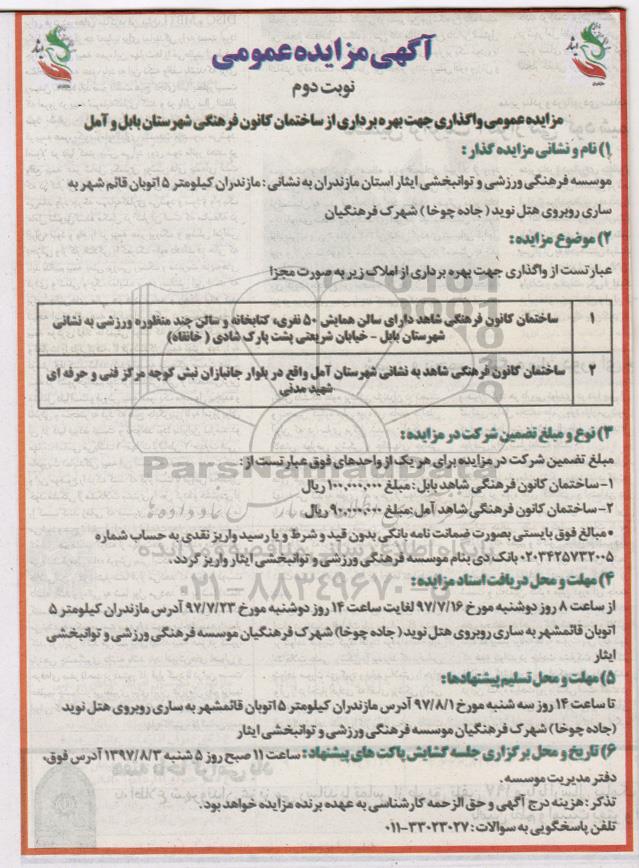 آگهی مزایده عمومی
نوبت دوم
مزایده عمومی واگذاری جهت بهره برداری از ساختمان کانون فرهنگی شهرستان بابل و آمل
۱) نام و نشانی مزایده گذار :
موسسه فرهنگی ورزشی و توانبخشی ایثار استان مازندران به نشانی : مازندران کیلومتر ۵ اتوبان قائم شهر به
ساری روبروی هتل نوید ( جاده چوخا ) شهرک فرهنگیان
۲) موضوع مزایده :
عبارتست از واگذاری جهت بهره برداری از املاک زیر به صورت مجزا
۱ ساختمان کانون فرهنگی شاهد دارای سالن همایش ۵۰ نفری، کتابخانه و سالن چند منظوره ورزشی به نشانی
شهرستان بابل - خیابان شریعتی پشت پارک شادی ( خانقاه)
۲ ساختمان کانون فرهنگی شاهد به نشانی شهرستان آمل واقع در بلوار جانبازان نبش کوچه مرکز فنی و حرفه ای
شهید مدنی
۳) نوع و مبلغ تضمین شرکت در مزایده :
مبلغ تضمین شرکت در مزایده برای هر یک از واحدهای فوق عبارتست از :
۱- ساختمان کانون فرهنگی شاهد بابل : مبلغ ۱۰۰,۰۰۰,۰۰۰ ریال
۲- ساختمان کانون فرهنگی شاهد آمل :مبلغ ۹۰,۰۰۰,۰۰۰ ریال
• مبالغ فوق بایستی بصورت ضمانت نامه بانکی بدون قید و شرط و یا رسید واریز نقدی به حساب شماره
۰۲۰۳۴۲۵۷۳۲۰۰۵ بانک دی بنام موسسه فرهنگی ورزشی و توانبخشی ایثار واریز گردد.
۴) مهلت و محل دریافت اسناد مزایده :
از ساعت ۸ روز دوشنبه مورخ ۹۷/۷/۱۶ لغایت ساعت ۱۴ روز دوشنبه مورخ ۹۷/۷/۲۳ آدرس مازندران کیلومتر ۵
اتوبان قائمشهر به ساری روبروی هتل نوید ( جاده چوخا) شهرک فرهنگیان موسسه فرهنگی ورزشی و توانبخشی
ایثار
۵) مهلت و محل تسلیم پیشنهادها:
تا ساعت ۱۴ روز سه شنبه مورخ ۹۷/۸/۱ آدرس مازندران کیلومتر ۵ اتوبان قائمشهر به ساری روبروی هتل نوید
(جاده چوخا) شهرک فرهنگیان موسسه فرهنگی ورزشی و توانبخشی ایثار
۶) تاریخ و محل برگزاری جلسه گشایش پاکت های پیشنهاد : ساعت ۱۱ صبح روز ۵ شنبه ۱۳۹۷/۸/۳ آدرس فوق،
دفتر مدیریت موسسه.
تذکر : هزینه درج آگهی و حق الزحمه کارشناسی به عهده برنده مزایده خواهد بود.
تلفن پاسخگویی به سوالات : ۳۳۰۲۳۰۲۷-۰۱۱
ParsNamadData
۰۲۱-۸۸۳۴۹۶۷۰